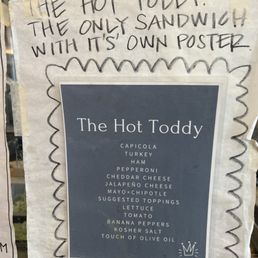 THE HOT TODDY:
THE ONLY SANDWICH
WITH IT'S OWN POSTER
The Hot Toddy
CAPICOLA
TURKEY
HAM
PEPPERONI
CHEDDAR CHEESE
JALAPEÑO CHEESE
MAYO+CHIPOTLE
SUGGESTED TOPPINGS
LETTUCE
TOMATO
BANANA PEPPERS
KOSHER SALT
TOUCH OF OLIVE OIL
M